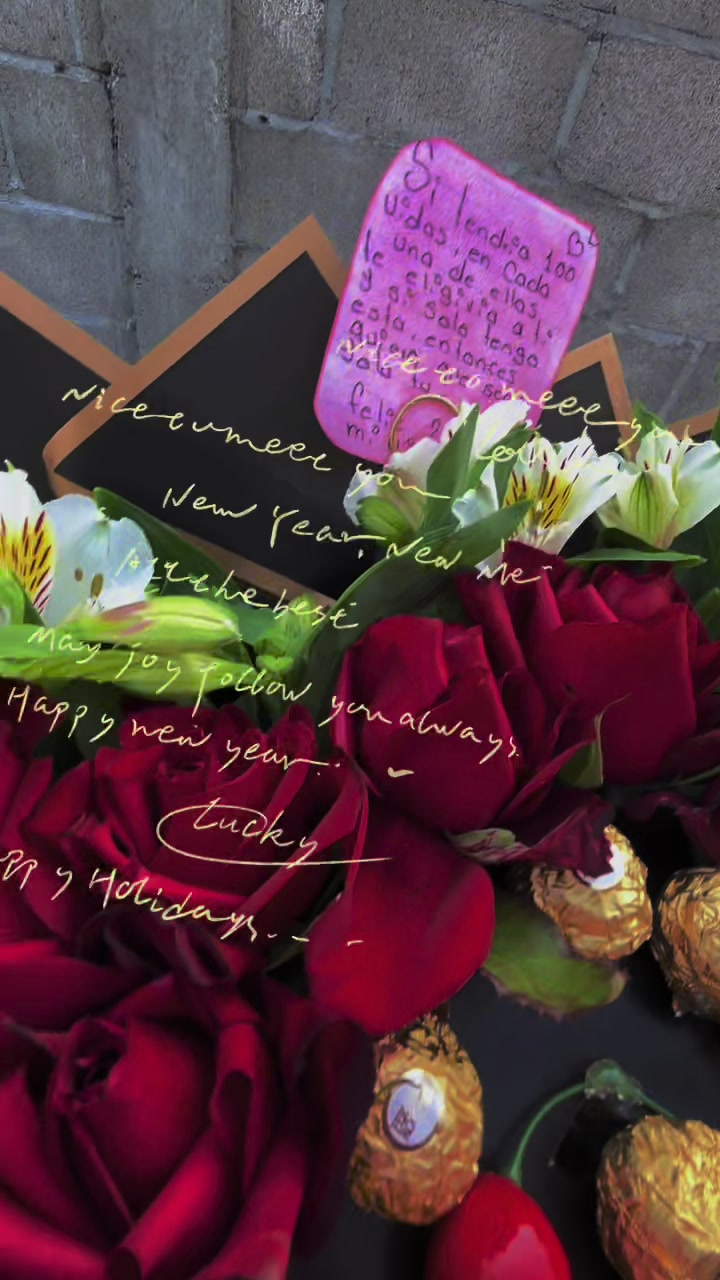 Si tendria 100
vidas, en Cada
una de ellas
te elegiria a ti
y si solo tengo
esta, entonces
solo tu
feliz
Nice to meet you
Nice to meet you
New Year, New Me
be the best
May joy follow you always
Happy new year.
Lucky
ppy Holidays..--